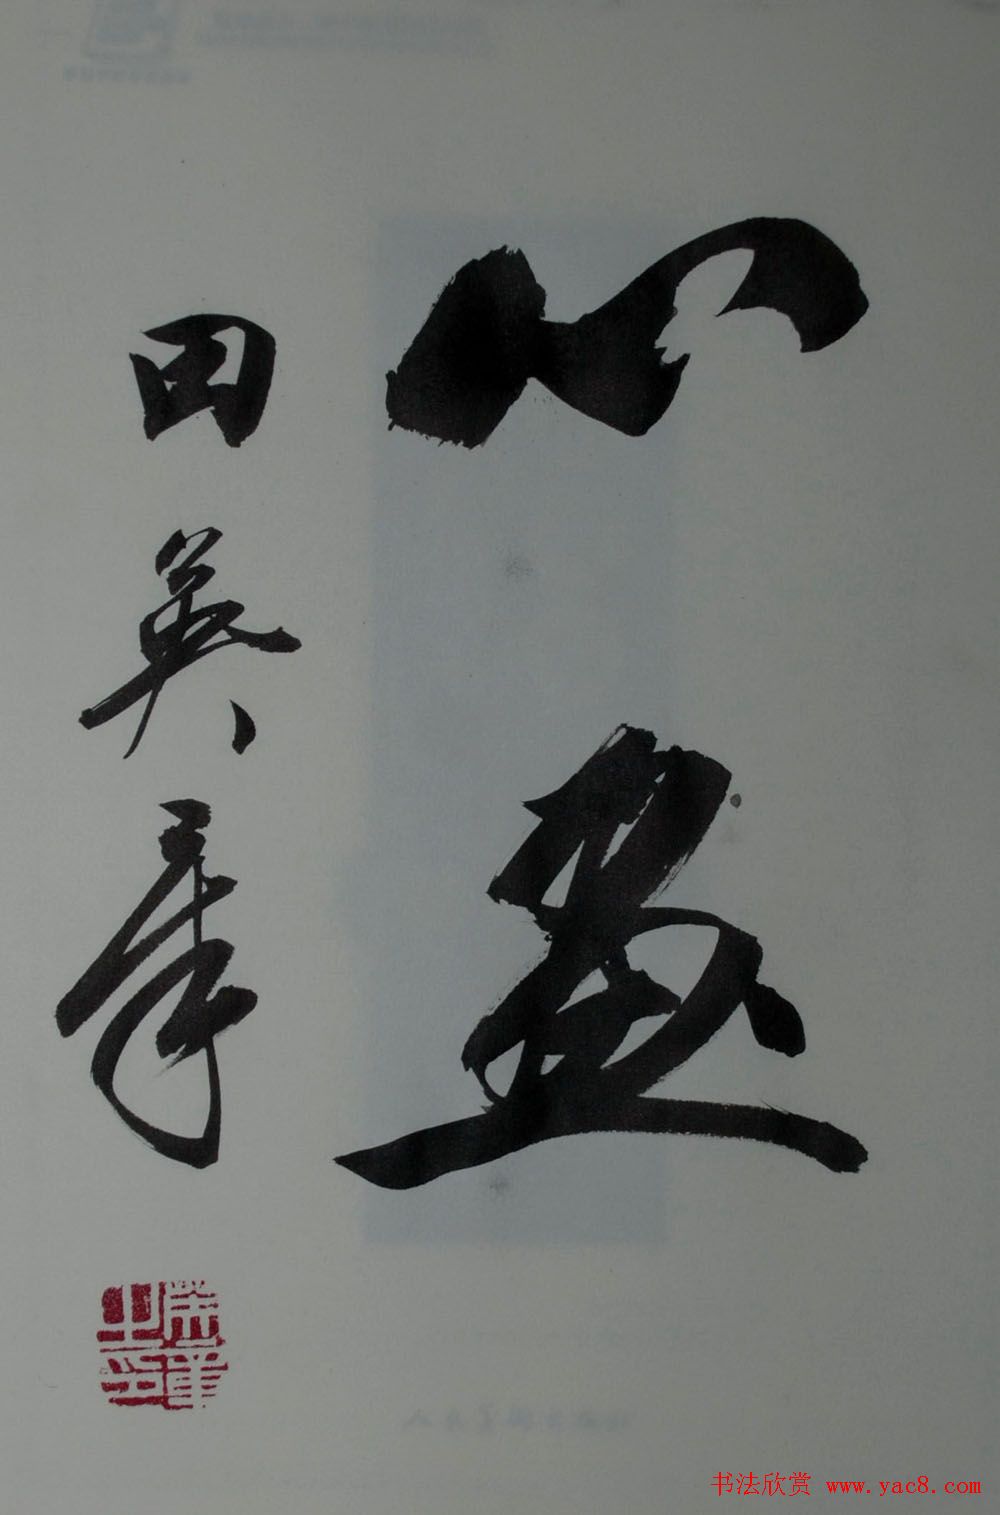 心画
田英章
书法欣赏 www.yac8.com